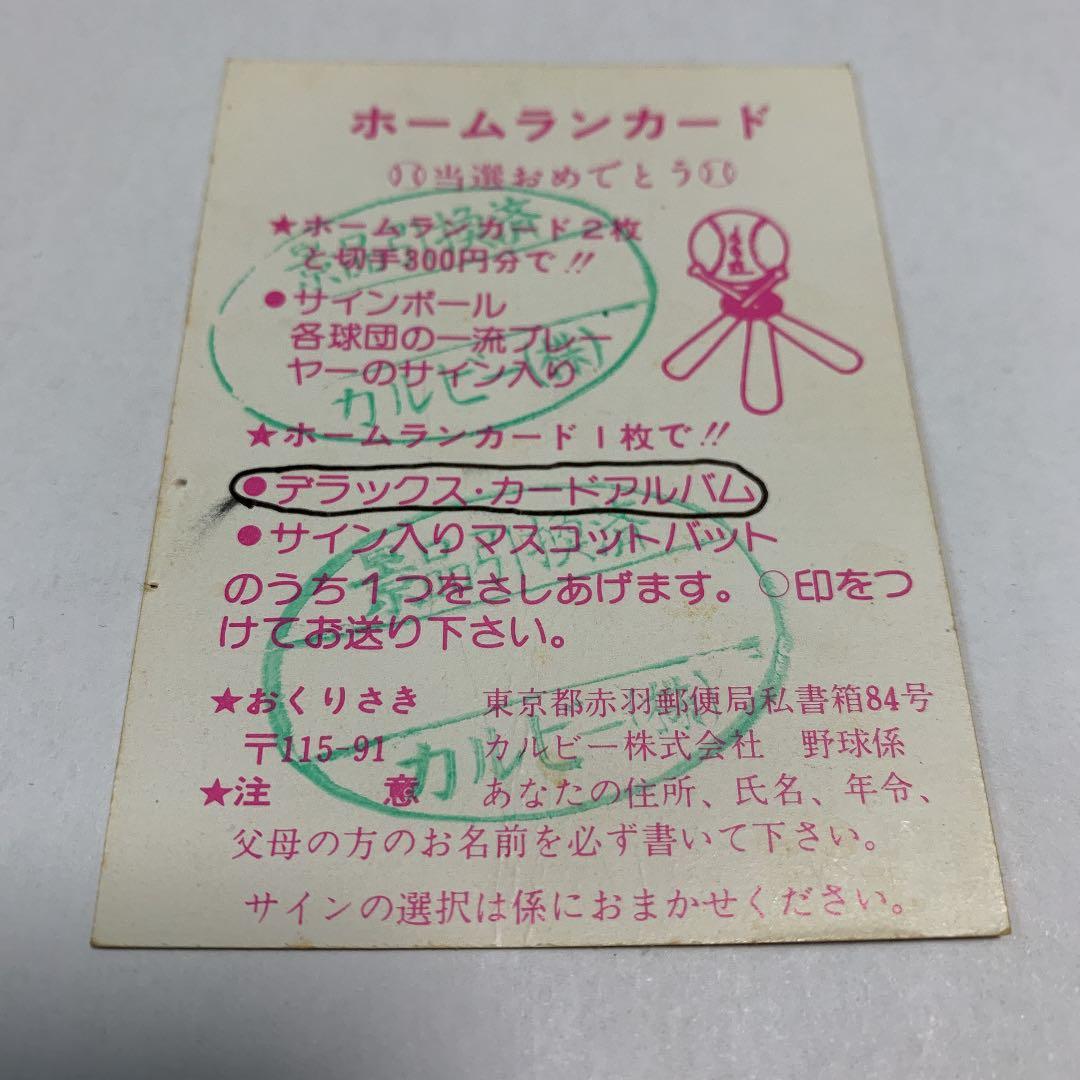 ホームランカード
当選おめでとう
★ホームランカード2枚
と切手300円分で!!
●サインボール
各球団の一流プレー
ヤーのサイン入り
★ホームランカード1枚で!!
●デラックス・カードアルバム
●サイン入りマスコットバット
のうち1つをさしあげます。○印をつ
けてお送り下さい。
★おくりさき 東京都赤羽郵便局私書箱84号
〒115-91 カルビー株式会社 野球係
★注意 あなたの住所、氏名、年令、
父母の方のお名前を必ず書いて下さい。
サインの選択は係におまかせください。
景品引換済
カルビー(株)
景品引換済
カルビー(株)